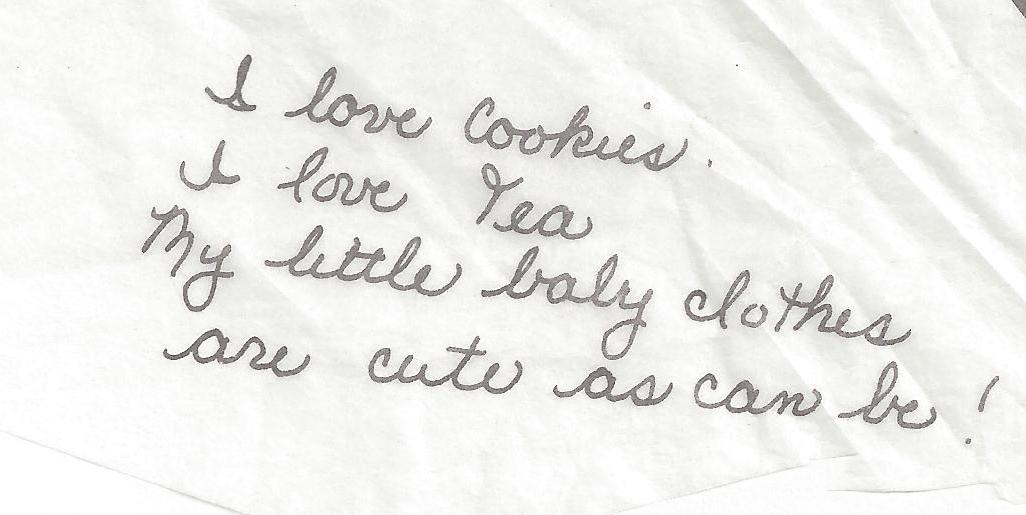 I love Cookies.
I love Tea
My little baby clothes
are cute as can be!